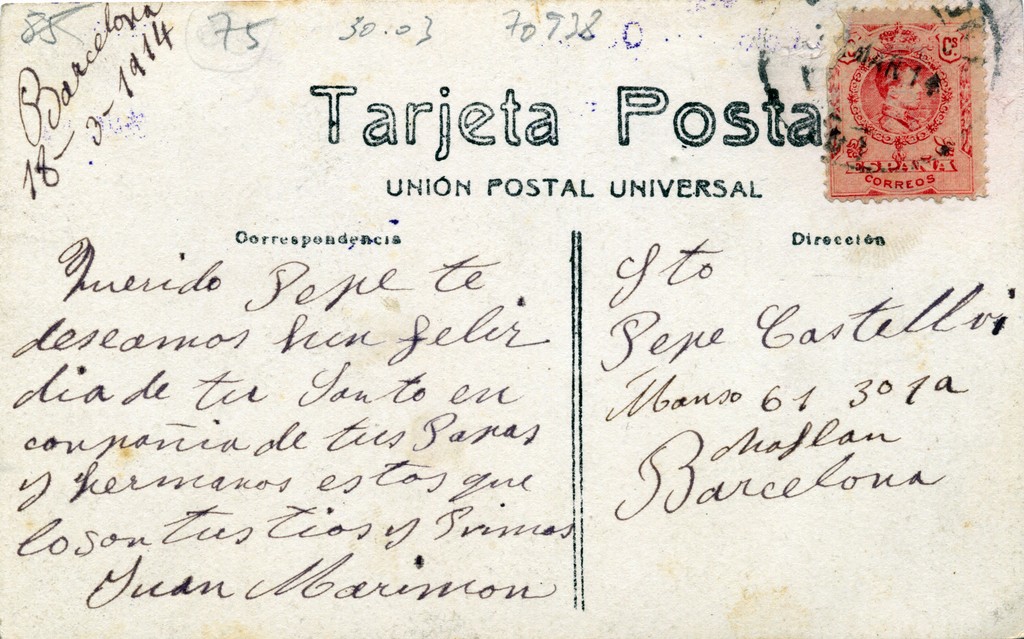 85 75 30.03 70938
Barcelona
18-3-1914
Tarjeta Posta
UNIÓN POSTAL UNIVERSAL
Cs
MAR 14
ESPAÑA
CORREOS
Correspondencia
Querido Pepe te
deseamos hun feliz
dia de tu Santo en
conpañia de tus Papas
y hermanos estos que
lo son tus tios y Primos
Juan Marimon
Dirección
Sto
Pepe Castellvi
Manso 61 3o 1a
Barcelona